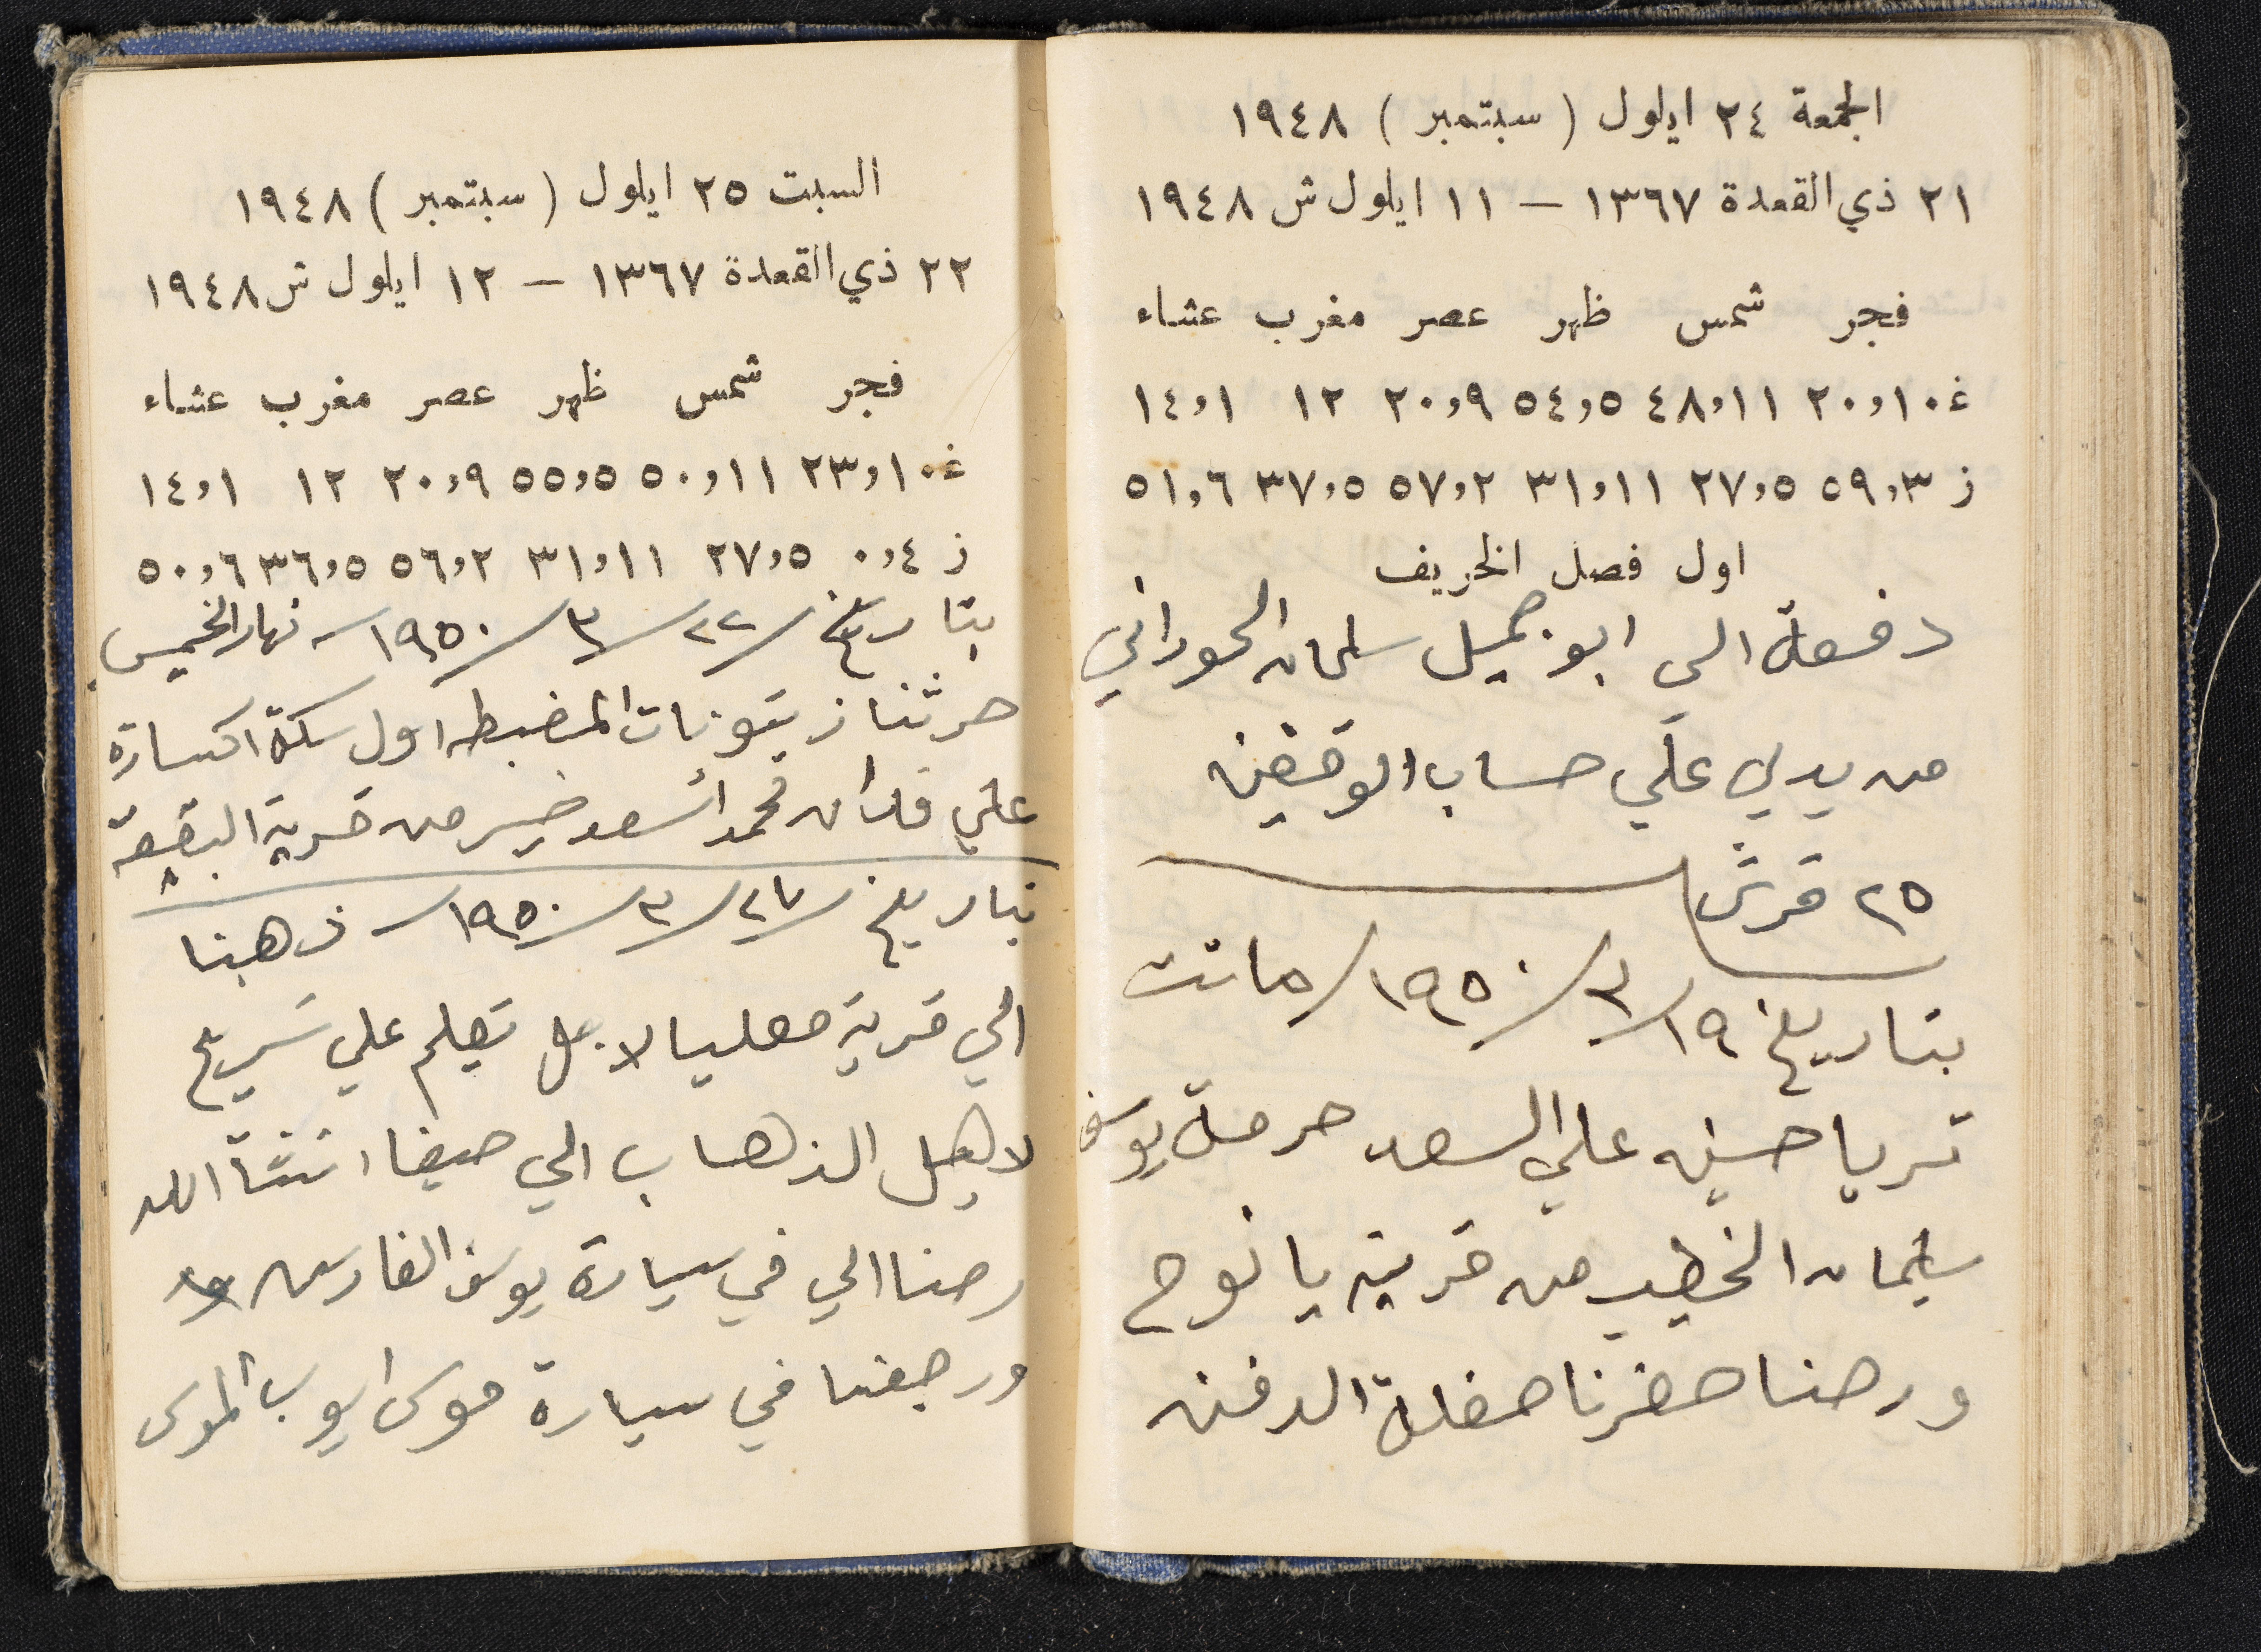 الجمعة ٢٤ ايلول (سبتمبر) ١٩٤٨
٢١ ذي القعدة ١٣٦٧ – ١١ ايلول ش ١٩٤٨
فجر شمس ظهر عصر مغرب عشاء
غ ١٠,٢٠ ١١,٤٨ ٥,٥٤ ٩,٢٠ ١٢ ١,١٤
ز ٣,٥٩ ٥,٢٧ ١١,٣١ ٢,٥٧ ٥,٣٧ ٦,٥١
اول فصل الخريف
دفعة الى ابو جميل سلمان الحوراني
من يدي علي حساب الوقفين
٢٥ قرش
بتاريخ ١٩/٣/١٩٥٠/ ماتت
ثريا حسين علي السعد حرمة يوسف
سليمان الخطيب من قرية يانوح
ورحنا حضرنا حفلة الدفن
السبت ٢٥ ايلول (سبتمبر) ١٩٤٨
٢٢ ذي القعدة ١٣٦٧ – ١٢ ايلول ش ١٩٤٨
فجر شمس ظهر عصر مغرب عشاء
غ ١٠,٢٣ ١١,٥٠ ٥,٥٥ ٩,٢٠ ١٢ ١,١٤
ز ٤,٠ ٥,٢٧ ١١,٣١ ٢,٥٦ ٥,٣٦ ٦,٥٠
بتاريخ /٢٢/٣/١٩٥٠/ نهار الخميس
حرثنا زيتونات المضبطه اول سكة اكسارة
علي فدان محمد اسعد خير من قرية البقيعة
بتاريخ /٢٧/٣/١٩٥٠/ ذهبنا
الي قرية معليا لاجل تعليم علي تسريح
لاجل الذهاب الي حيفا انشآ الله
رحنا الي في سيارة يوسف الفارس
ورجعنا في سيارة موسى ايوب الموسى